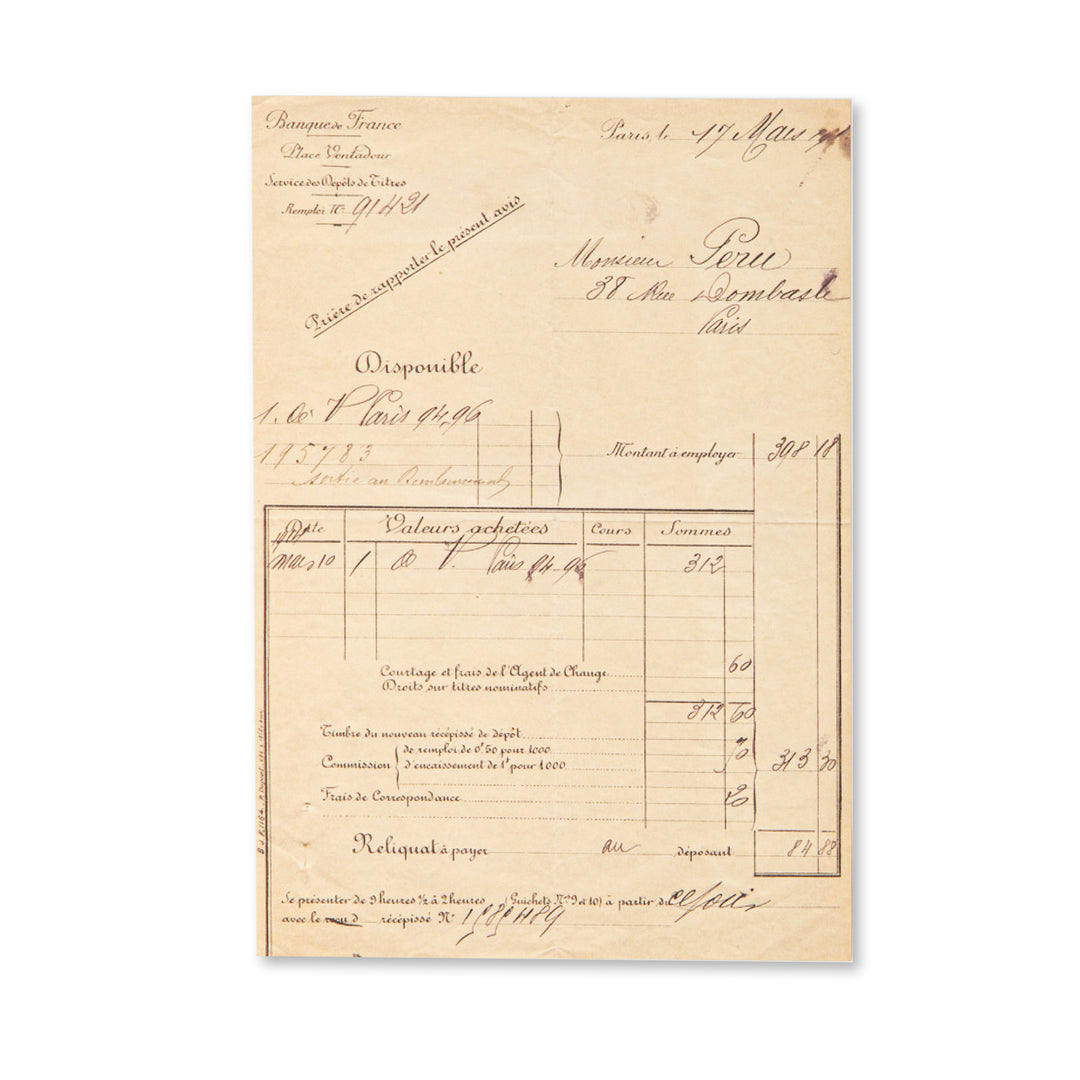 Banque de France
Place Ventadour
Service des Dépôts de Titres
Remploi N° 91421
Paris, le 17 Mars
Prière de rapporter le présent avis
Monsieur Peru
38 Rue Dombasle
Paris
Disponible
1. V Paris 94-96
195783
sortie au Remboursement
Montant à employer 398 18
Date Valeurs achetées Cours Sommes
Mars 10 1 V. Paris 94-96 312
Courtage et frais de l'Agent de Change 60
Droits sur titres nominatifs
312 60
Timbre du nouveau récépissé de dépôt
Commission { de remploi de 0f 50 pour 1000
d'encaissement de 1f pour 1000 313 30
Frais de Correspondance 20
Reliquat à payer au déposant 84 88
Se présenter de 9 heures ½ à 2 heures (Guichets Nos 9 et 10) à partir du ce jour
avec le récépissé N°